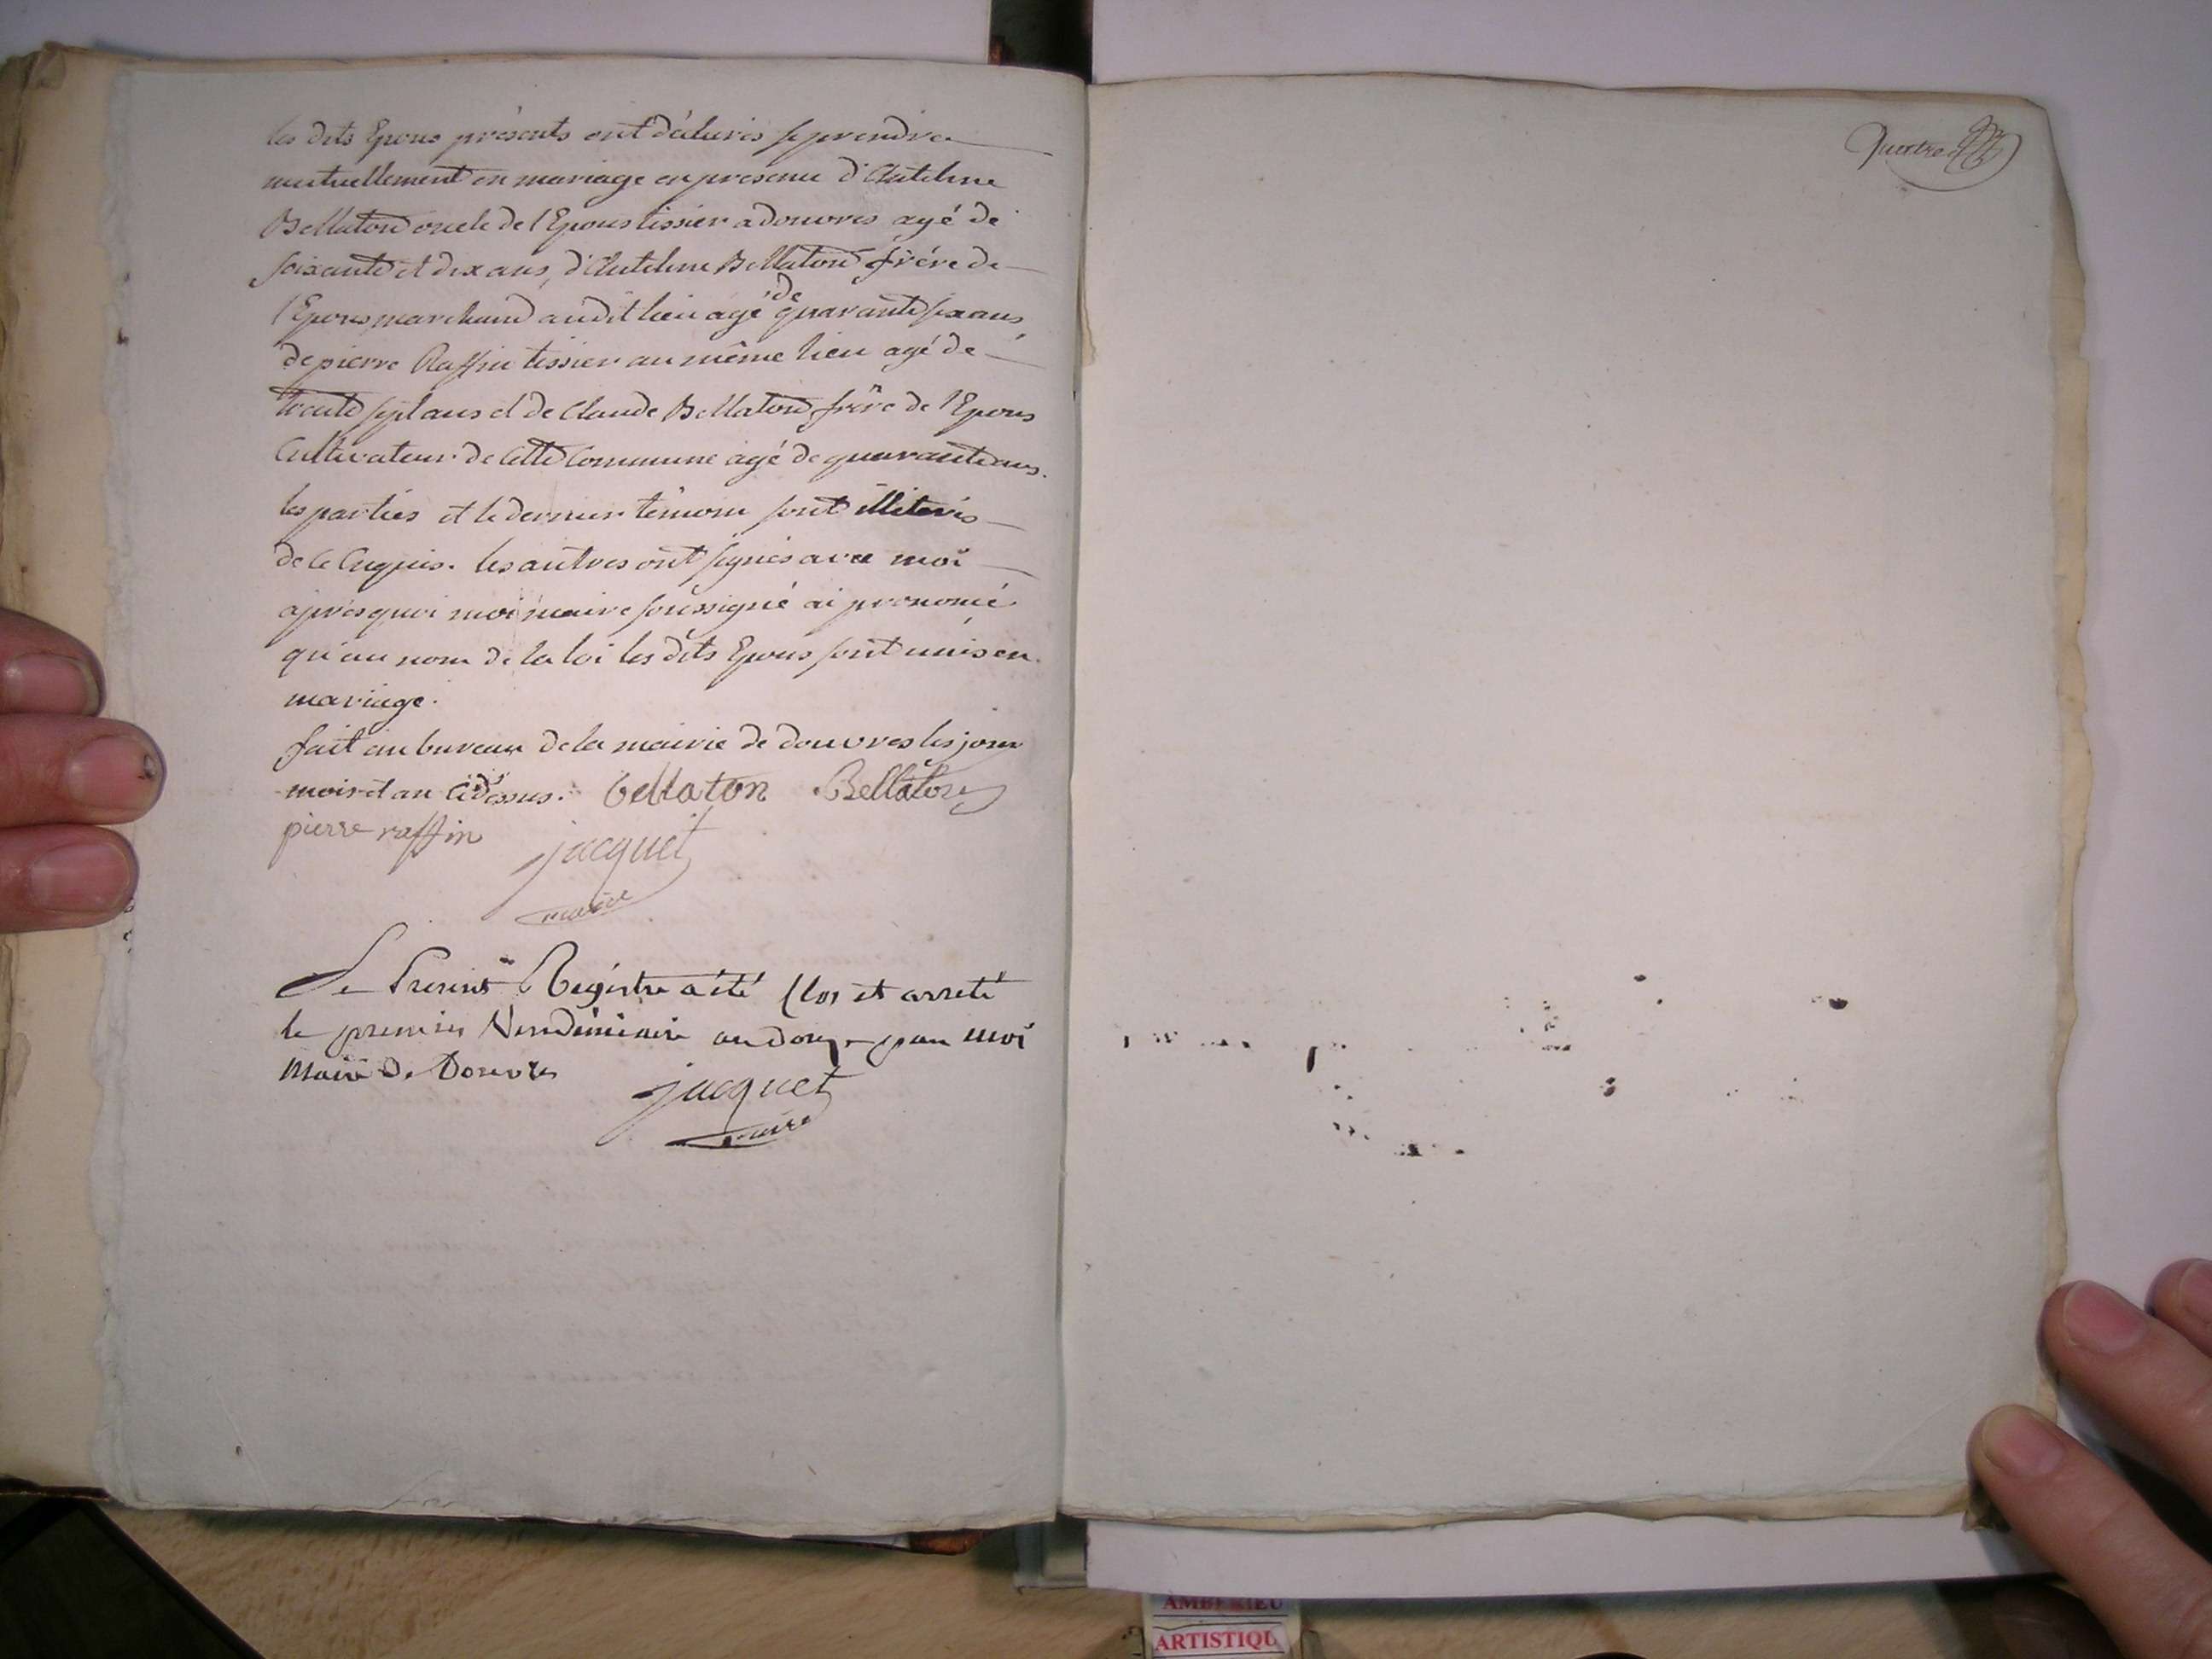 les dits Epous présents ont déclarés se prendre
mutuellement en mariage en presence d'Antelme
Bellaton oncle de l'Epous tissier a douvres agé de
soixante et dix ans, d'Antelme Bellaton frére de
l'Epous marchand audit lieu agé de quarante six ans,
de pierre Raffin tissier au même lieu agé de
trente sept ans et de Claude Bellaton frère de l'Epous
Cultivateur de Cette Commune agé de quarante ans.
les parties et le dernier témoin sont illiterés
de ce Enquis. les autres ont signés avec moi
après quoi moi maire soussigné ai prononcé
qu'au nom de la loi les dits Epous sont unis en
mariage.
fait au bureau de la mairie de douvres les jour
mois et an cidessus. bellaton Bellaton
pierre raffin
jacquet
maire
Le Present Régistre a été Clos et arreté
le premier Vendémiaire an douze par moi
Maire De Douvres
jacquet
maire
AMBERIEU
ARTISTIQU